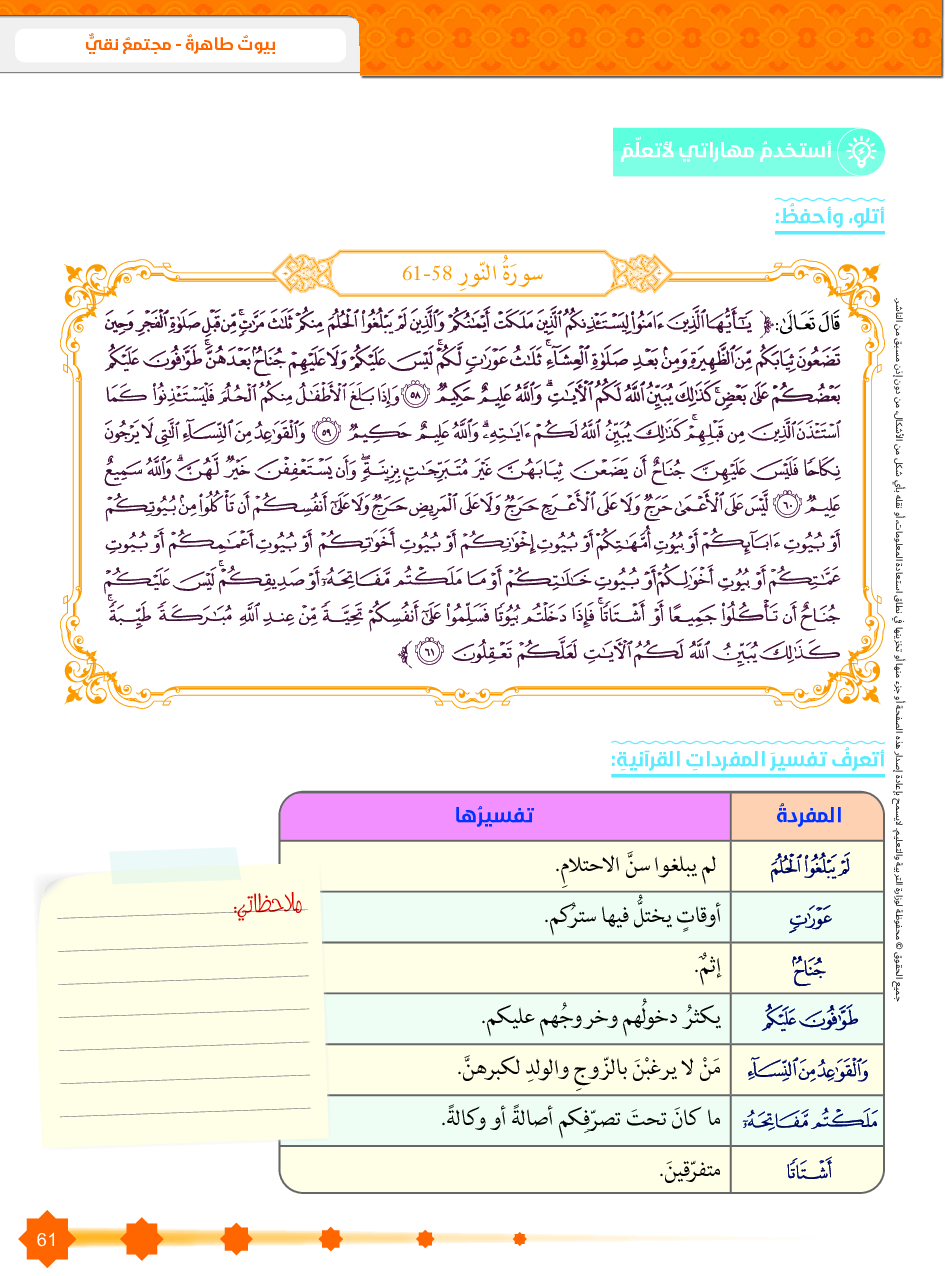 بيوتٌ طاهرةٌ - مجتمعٌ نقيٌّ
أستخدمُ مهاراتي لأتعلّمَ
أتلو، وأحفظُ:
سورَةُ النّورِ 58-61
قَالَ تَعَالَىٰ: ﴿ يَـٰٓأَيُّهَا ٱلَّذِينَ ءَامَنُوا۟ لِيَسْتَـْٔذِنكُمُ ٱلَّذِينَ مَلَكَتْ أَيْمَـٰنُكُمْ وَٱلَّذِينَ لَمْ يَبْلُغُوا۟ ٱلْحُلُمَ مِنكُمْ ثَلَـٰثَ مَرَّٰتٍۢ ۚ مِّن قَبْلِ صَلَوٰةِ ٱلْفَجْرِ وَحِينَ
تَضَعُونَ ثِيَابَكُم مِّنَ ٱلظَّهِيرَةِ وَمِنۢ بَعْدِ صَلَوٰةِ ٱلْعِشَآءِ ۚ ثَلَـٰثُ عَوْرَٰتٍۢ لَّكُمْ ۚ لَيْسَ عَلَيْكُمْ وَلَا عَلَيْهِمْ جُنَاحٌۢ بَعْدَهُنَّ ۚ طَوَّٰفُونَ عَلَيْكُم
بَعْضُكُمْ عَلَىٰ بَعْضٍۢ ۚ كَذَٰلِكَ يُبَيِّنُ ٱللَّهُ لَكُمُ ٱلْـَٔايَـٰتِ ۗ وَٱللَّهُ عَلِيمٌ حَكِيمٌۭ ٥٨ وَإِذَا بَلَغَ ٱلْأَطْفَـٰلُ مِنكُمُ ٱلْحُلُمَ فَلْيَسْتَـْٔذِنُوا۟ كَمَا
ٱسْتَـْٔذَنَ ٱلَّذِينَ مِن قَبْلِهِمْ ۚ كَذَٰلِكَ يُبَيِّنُ ٱللَّهُ لَكُمْ ءَايَـٰتِهِۦ ۗ وَٱللَّهُ عَلِيمٌ حَكِيمٌۭ ٥٩ وَٱلْقَوَٰعِدُ مِنَ ٱلنِّسَآءِ ٱلَّـٰتِى لَا يَرْجُونَ
نِكَاحًۭا فَلَيْسَ عَلَيْهِنَّ جُنَاحٌ أَن يَضَعْنَ ثِيَابَهُنَّ غَيْرَ مُتَبَرِّجَـٰتٍۭ بِزِينَةٍۢ ۖ وَأَن يَسْتَعْفِفْنَ خَيْرٌۭ لَّهُنَّ ۗ وَٱللَّهُ سَمِيعٌ
عَلِيمٌۭ ٦٠ لَّيْسَ عَلَى ٱلْأَعْمَىٰ حَرَجٌۭ وَلَا عَلَى ٱلْأَعْرَجِ حَرَجٌۭ وَلَا عَلَى ٱلْمَرِيضِ حَرَجٌۭ وَلَا عَلَىٰٓ أَنفُسِكُمْ أَن تَأْكُلُوا۟ مِنۢ بُيُوتِكُمْ
أَوْ بُيُوتِ ءَابَآئِكُمْ أَوْ بُيُوتِ أُمَّهَـٰتِكُمْ أَوْ بُيُوتِ إِخْوَٰنِكُمْ أَوْ بُيُوتِ أَخَوَٰتِكُمْ أَوْ بُيُوتِ أَعْمَـٰمِكُمْ أَوْ بُيُوتِ
عَمَّـٰتِكُمْ أَوْ بُيُوتِ أَخْوَٰلِكُمْ أَوْ بُيُوتِ خَـٰلَـٰتِكُمْ أَوْ مَا مَلَكْتُم مَّفَاتِحَهُۥٓ أَوْ صَدِيقِكُمْ ۚ لَيْسَ عَلَيْكُمْ
جُنَاحٌ أَن تَأْكُلُوا۟ جَمِيعًا أَوْ أَشْتَاتًۭا ۚ فَإِذَا دَخَلْتُم بُيُوتًۭا فَسَلِّمُوا۟ عَلَىٰٓ أَنفُسِكُمْ تَحِيَّةًۭ مِّنْ عِندِ ٱللَّهِ مُبَـٰرَكَةًۭ طَيِّبَةًۭ ۚ
كَذَٰلِكَ يُبَيِّنُ ٱللَّهُ لَكُمُ ٱلْـَٔايَـٰتِ لَعَلَّكُمْ تَعْقِلُونَ ٦١ ﴾
أتعرفُ تفسيرَ المفرداتِ القرآنيةِ:
المفردةُ تفسيرُها
لَمْ يَبْلُغُوا۟ ٱلْحُلُمَ لم يبلغوا سنَّ الاحتلامِ.
عَوْرَٰتٍۢ أوقاتٍ يختلُّ فيها ستركُم.
جُنَاحٌۢ إثمٌ.
طَوَّٰفُونَ عَلَيْكُم يكثرُ دخولُهم وخروجُهم عليكم.
وَٱلْقَوَٰعِدُ مِنَ ٱلنِّسَآءِ مَنْ لا يرغبْنَ بالزّوجِ والولدِ لكبرهنَّ.
مَلَكْتُم مَّفَاتِحَهُۥٓ ما كانَ تحتَ تصرّفِكم أصالةً أو وكالةً.
أَشْتَاتًۭا متفرّقينَ.
ملاحظاتي:
جميع الحقوق © محفوظة لوزارة التربية والتعليم. لايسمح بإعادة إصدار هذه الصفحة أو جزء منها أو تخزينها في نطاق استعادة المعلومات، أو نقله بأي شكل من الأشكال، من دون إذن مسبق من الناشر.
61